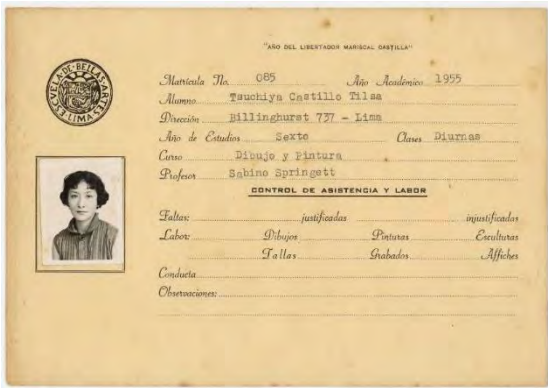 "AÑO DEL LIBERTADOR MARISCAL CASTILLA"
ESCUELA·DE·BELLAS·ARTES
LIMA
Matrícula No. 085 Año Académico 1955
Alumno Tsuchiya Castillo Tilsa
Dirección Billinghurst 737 - Lima
Año de Estudios Sexto Clases Diurnas
Curso Dibujo y Pintura
Profesor Sabino Springett
CONTROL DE ASISTENCIA Y LABOR
Faltas: justificadas injustificadas
Labor: Dibujos Pinturas Esculturas
Tallas Grabados Affiches
Conducta
Observaciones: